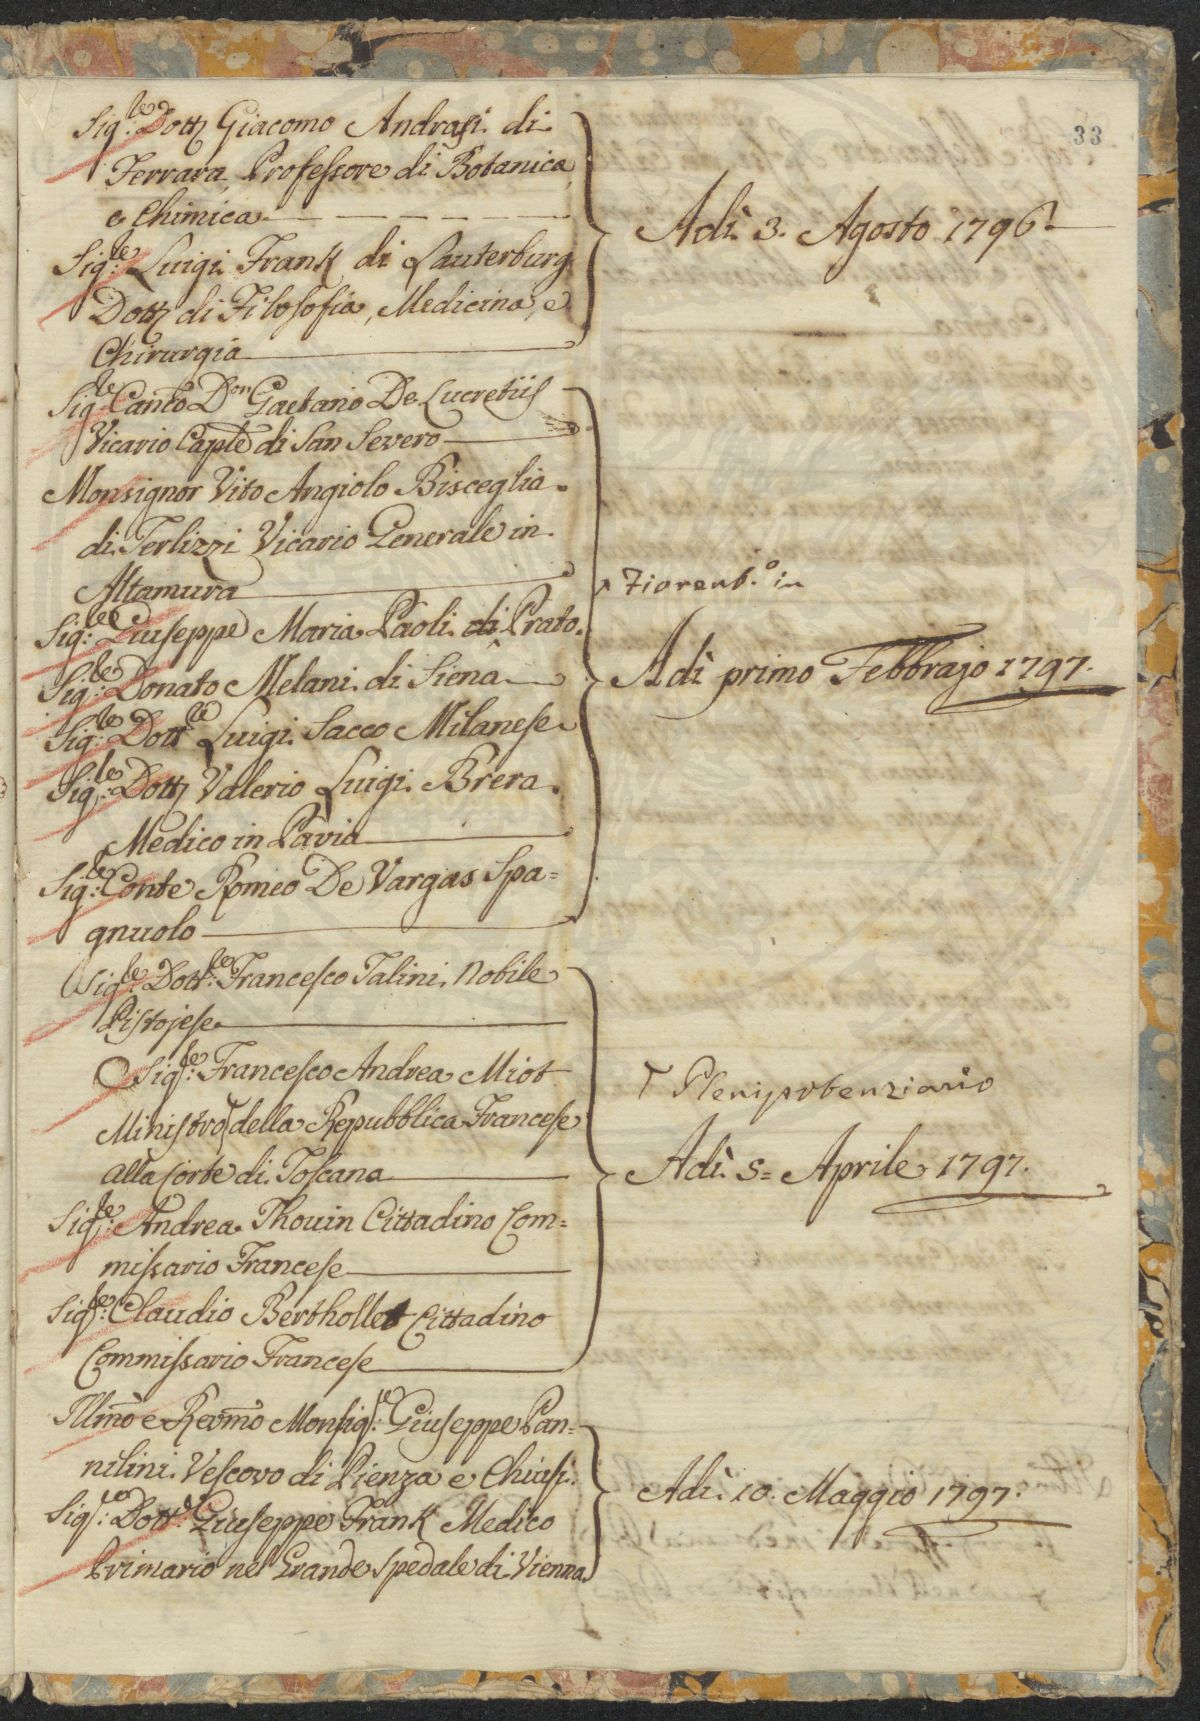 33
Sig.re Dott. Giacomo Andrasi di
Ferrara Professore di Botanica
e Chimica
Adì 3. Agosto 1796.
Sig.re Luigi Frank di Lauterburg
Dott. di Filosofia, Medicina, e
Chirurgia
Sig.re Can.co Don Gaetano De Lucretiis
Vicario Caple di San Severo
Monsignor Vito Angiolo Bisceglia
di Terlizzi Vicario Generale in
Altamura
Fiorent.o in
Sig.re Giuseppe Maria Paoli di Prato.
Sig.re Donato Melani di Siena
Adì primo Febbrajo 1797.
Sig.re Dott.re Luigi Sacco Milanese
Sig.re Dott. Valerio Luigi Brera
Medico in Pavia
Sig.re Conte Romeo De Vargas Spa=
gnuolo
Sig.re Dott.re Francesco Talini Nobile
Pistojese
Sig.re Francesco Andrea Miot
Plenipotenziario
Ministro della Repubblica Francese
alla Corte di Toscana
Adì 5= Aprile 1797.
Sig.re Andrea Thouin Cittadino Com=
missario Francese
Sig.re Claudio Berthollet Cittadino
Commissario Francese
Illmo e Revmo Monsig.re Giuseppe Pan=
nilini Vescovo di Pienza e Chiusi
Adì 10. Maggio 1797.
Sig.re Dott. Giuseppe Frank Medico
Primario nel Grande Spedale di Vienna